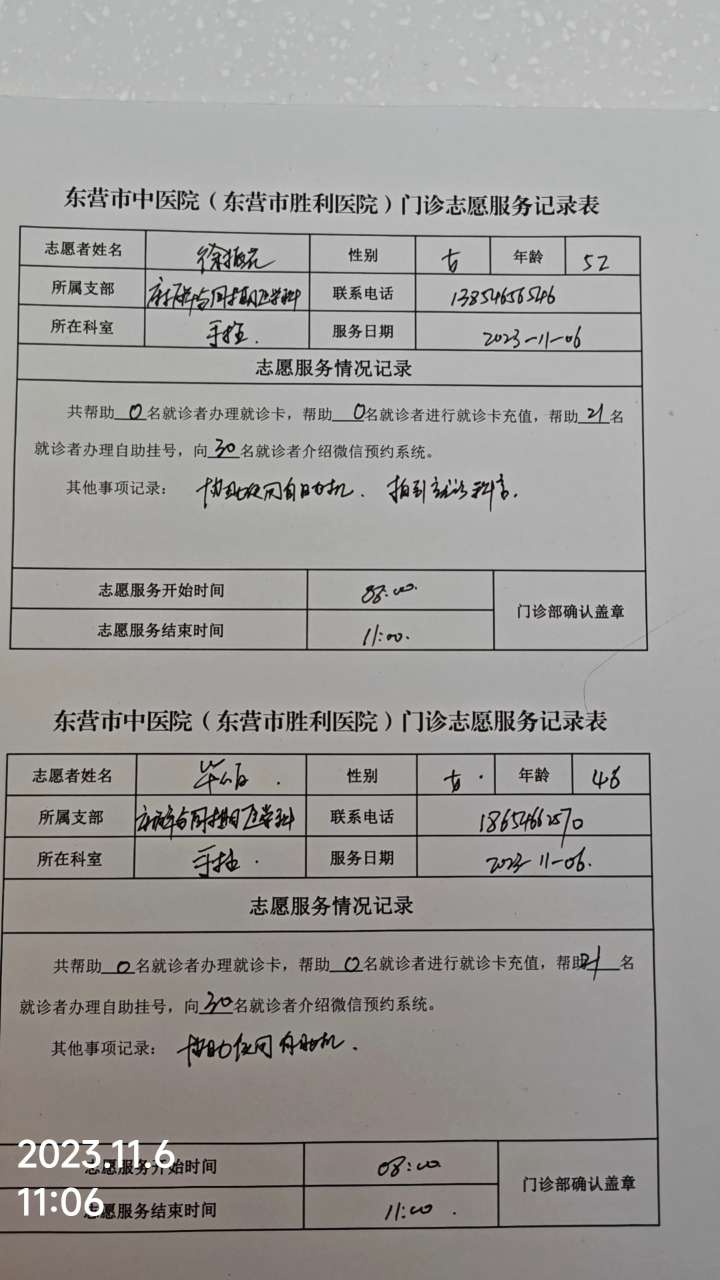 东营市中医院（东营市胜利医院）门诊志愿服务记录表
志愿者姓名 徐振花 性别 女 年龄 52
所属支部 麻醉与围术期医学科 联系电话 13854656546
所在科室 手术. 服务日期 2023-11-06
志愿服务情况记录
共帮助0名就诊者办理就诊卡，帮助0名就诊者进行就诊卡充值，帮助21名
就诊者办理自助挂号，向30名就诊者介绍微信预约系统。
其他事项记录： 协助使用自助机. 指引就诊科室.
志愿服务开始时间 08:00. 门诊部确认盖章
志愿服务结束时间 11:00.
东营市中医院（东营市胜利医院）门诊志愿服务记录表
志愿者姓名 性别 女. 年龄 46
所属支部 麻醉与围术期医学科 联系电话 18654662570
所在科室 手术. 服务日期 2023-11-06.
志愿服务情况记录
共帮助0名就诊者办理就诊卡，帮助0名就诊者进行就诊卡充值，帮助21名
就诊者办理自助挂号，向30名就诊者介绍微信预约系统。
其他事项记录： 协助使用自助机.
2023.11.6
志愿服务开始时间 08:00 门诊部确认盖章
11:06
志愿服务结束时间 11:00.